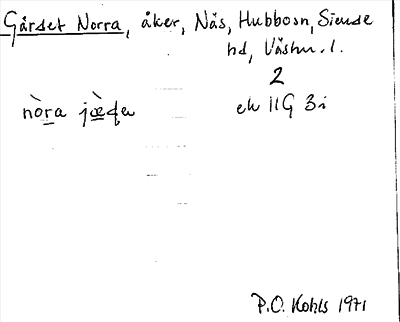 Gärdet Norra, åker, Näs, Hubbosn, Siende
hd, Västm. l.
2
nòra jæ̀ḍen
ek 11G 3i
P.O. Kohls 1971